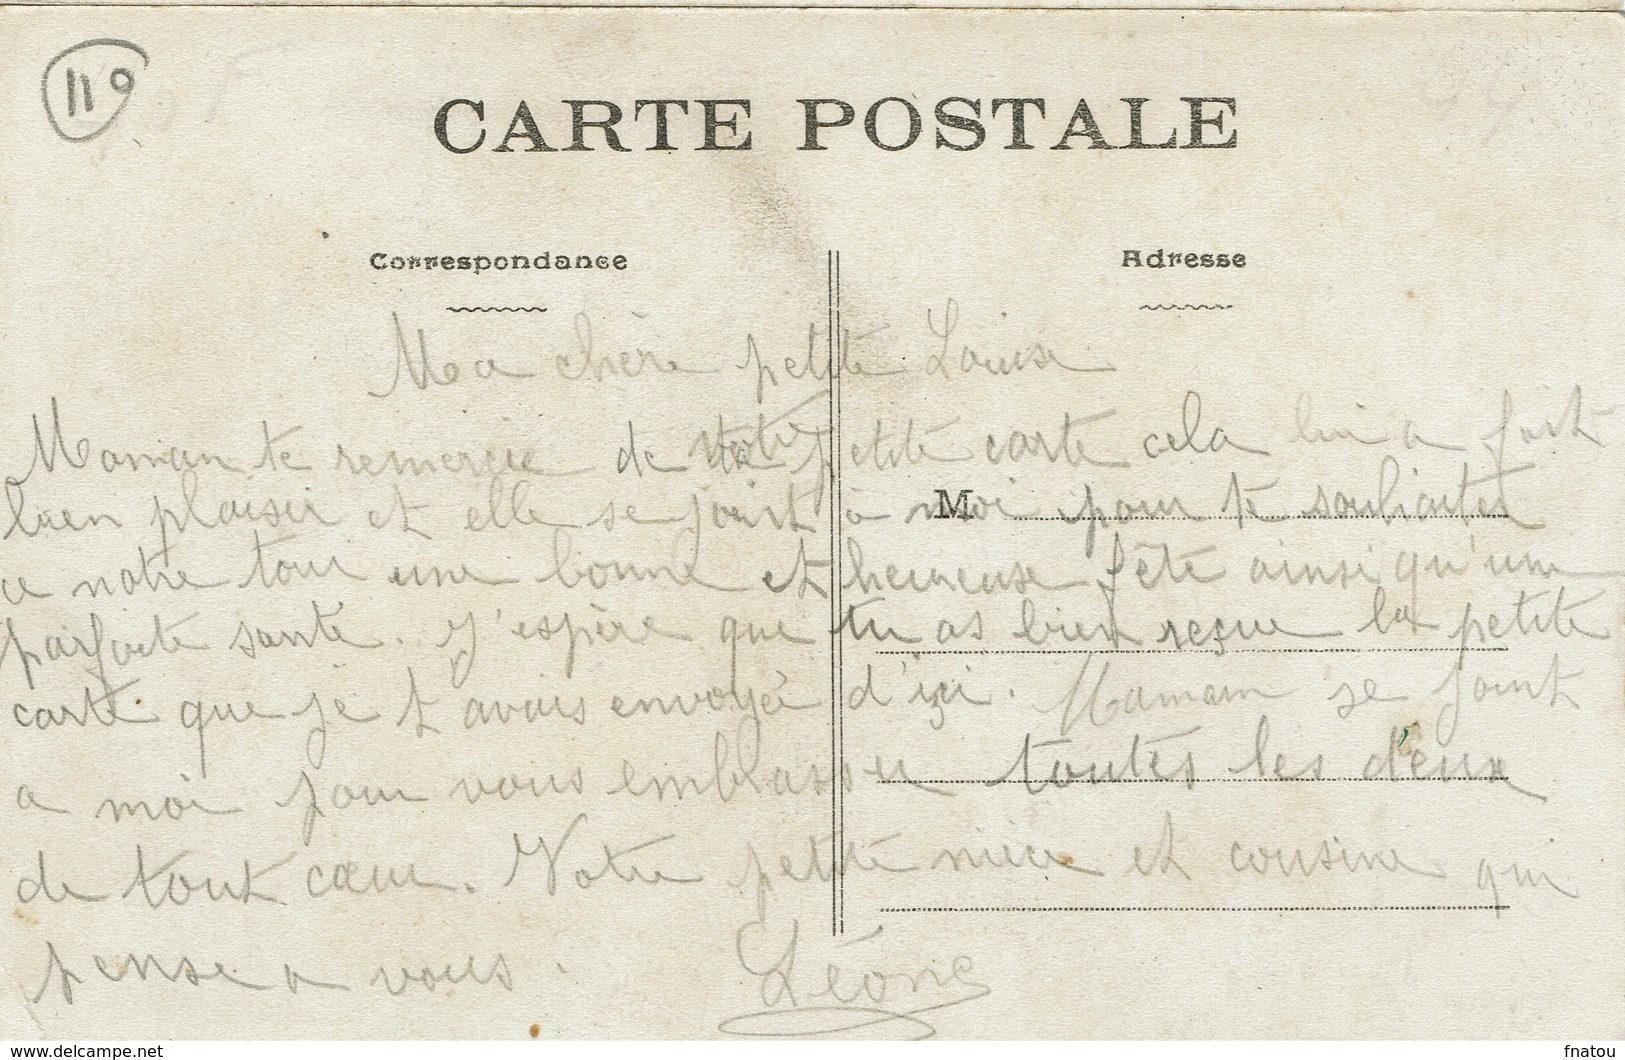 110
CARTE POSTALE
Correspondance
Adresse
Ma chère petite Louise
Maman te remercie de votre petite carte cela lui a fait
bien plaisir et elle se joint à moi pour te souhaiter
M
a notre tour une bonne et heureuse fête ainsi qu'une
parfaite santé. J'espère que tu as bien reçue la petite
carte que je t'avais envoyée d'içi. Maman se joint
a moi pour vous embrasser toutes les deux
de tout cœur. Votre petite nièce et cousine qui
pense a vous.
Léonie
www.delcampe.net
fnatou